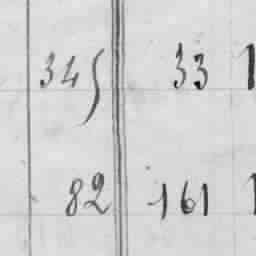 345 33 1
82 161 1